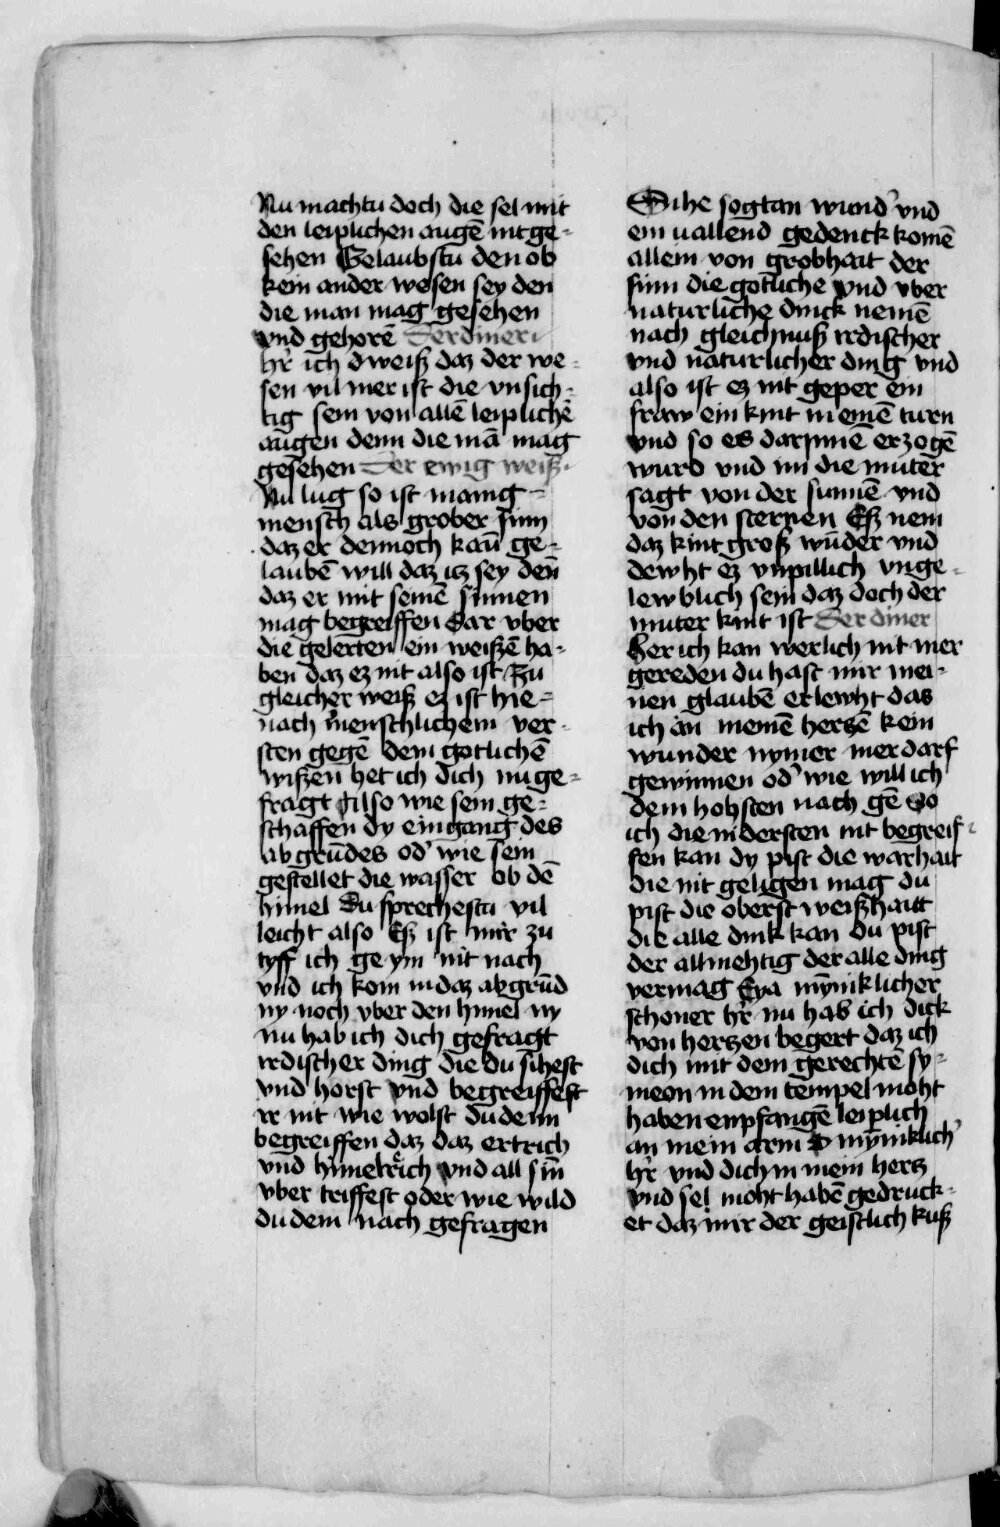 Nu machtu doch die sel mit
den leiplichen augē nit ge-
sehen Gelaubstu den ob
kein ander wesen sey den
die man mag gesehen
vnd gehorē Der diner
hr̄ ich dweiß daz der we-
sen vil mer ist die vnsich-
tig sein von allē leiplichē
augen denn die mā mag
gesehen Der ewig weiß
Nu lug so ist manig
mensch als grober sinn
daz er dennoch kaū ge-
laubē will daz icz sey deñ
daz er mit seinē sinnen
mag begreiffen Dar vber
die gelerten ein weißē ha-
ben daz ez nit also ist Zu
gleicher weiß ez ist hie-
nach menschlichem ver-
sten gegē dem gotlichē
wißen het ich dich nu ge-
fragt also wie sein ge-
schaffen dy eingang des
abgrūdes od' wie sein
gestellet die wasser ob dē
himel Du sprechestu vil
leicht also Eß ist mir zu
tyff ich ge ym nit nach
vnd ich kom in daz abgrūd
ny noch vber den himel ny
nu hab ich dich gefragt
irdischer ding die du sihest
vnd horst vnd begreiffest
ir nit wie wolst du denn
begreiffen daz daz ertrich
vnd himelrich vnd all siñ
vber triffest oder wie wild
du dem nach gefragen
Sihe sogtan wund' vnd
ein uallend gedenck komē
allein von grobhait der
sinn die gotliche vnd vber
naturliche dinck nemē
nach gleichnuß irdischer
vnd naturlicher ding vnd
also ist ez nit geper ein
fraw ein kint in einē turn
vnd so es darinnē erzogē
wurd vnd im die muter
sagt von der sunnē vnd
von den sternen Eß nem
daz kint groß wūder vnd
dewht ez vnpillich vnge-
lewblich sein daz doch der
muter kint ist Der diner
Her ich kan werlich nit mer
gereden du hast mir mei-
nen glaubē erlewht das
ich an meinē herczē kein
wunder nymer mer darf
gewinnen od' wie will ich
dem hohsten nach gē so
ich die nidersten nit begreif-
fen kan dy pist die warhait
die nit geligen mag du
pist die oberst weißhait
die alle dink kan du pist
der allmehtig der alle ding
vermag Eya myniklicher
schoner hr̄ nu hab ich dick
von herczen begert daz ich
dich mit dem gerechtē sy-
meon in dem tempel moht
haben enpfangē leiplich
an mein arm O myniklich'
hr̄ vnd dich in mein hercz
vnd sel moht habē gedruck-
et daz mir der geistlich kuß